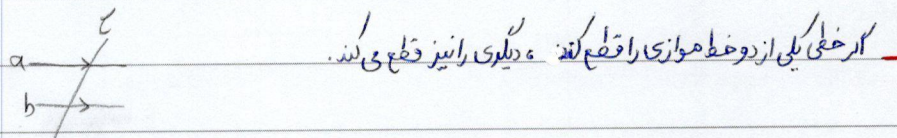 اگر خطی یکی از دو خط موازی را قطع کند ، دیگری را نیز قطع می کند.
a
b